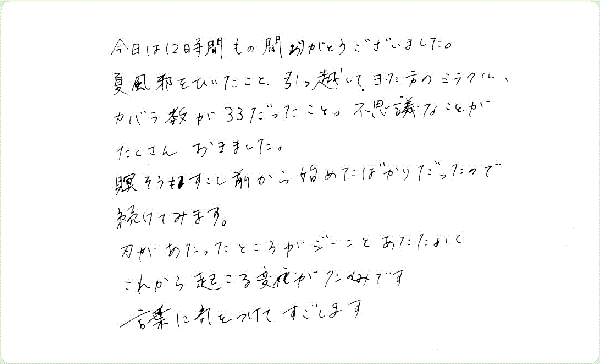 今日は12時間もの間ありがとうございました。
夏風邪をひいたこと、引っ越して、きた方のミラクル、
カバラ数が33だったこと。不思議なことが
たくさん おきました。
瞑そうもすこし前から始めたばかりだったので
続けてみます。
刃があたったところがジーンとあたたかく
これから起こる変化がたのしみです
言葉に気をつけて すごします